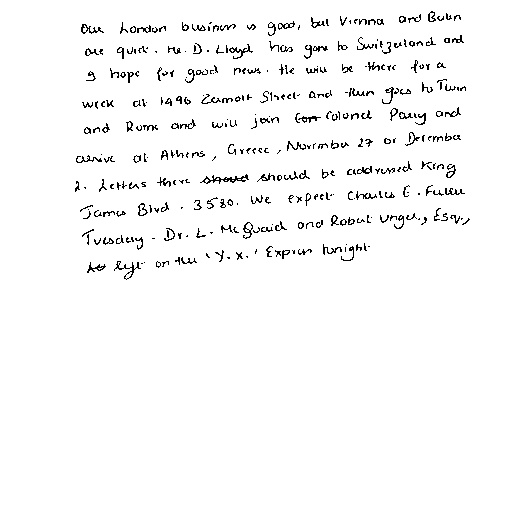 Our London business is good, but Vienna and Berlin
are quiet. Mr. D. Lloyd has gone to Switzerland and
I hope for good news. He will be there for a
week at 1496 Zermott Street and then goes to Turin
and Rome and will join Colonel Parry and
arrive at Athens, Greece, November 27 or December
2. Letters there should be addressed King
James Blvd. 3580. We expect Charles E. Fuller
Tuesday. Dr. L. McQuaid and Robert Unger, Esq.,
left on the 'Y.X.' Express tonight